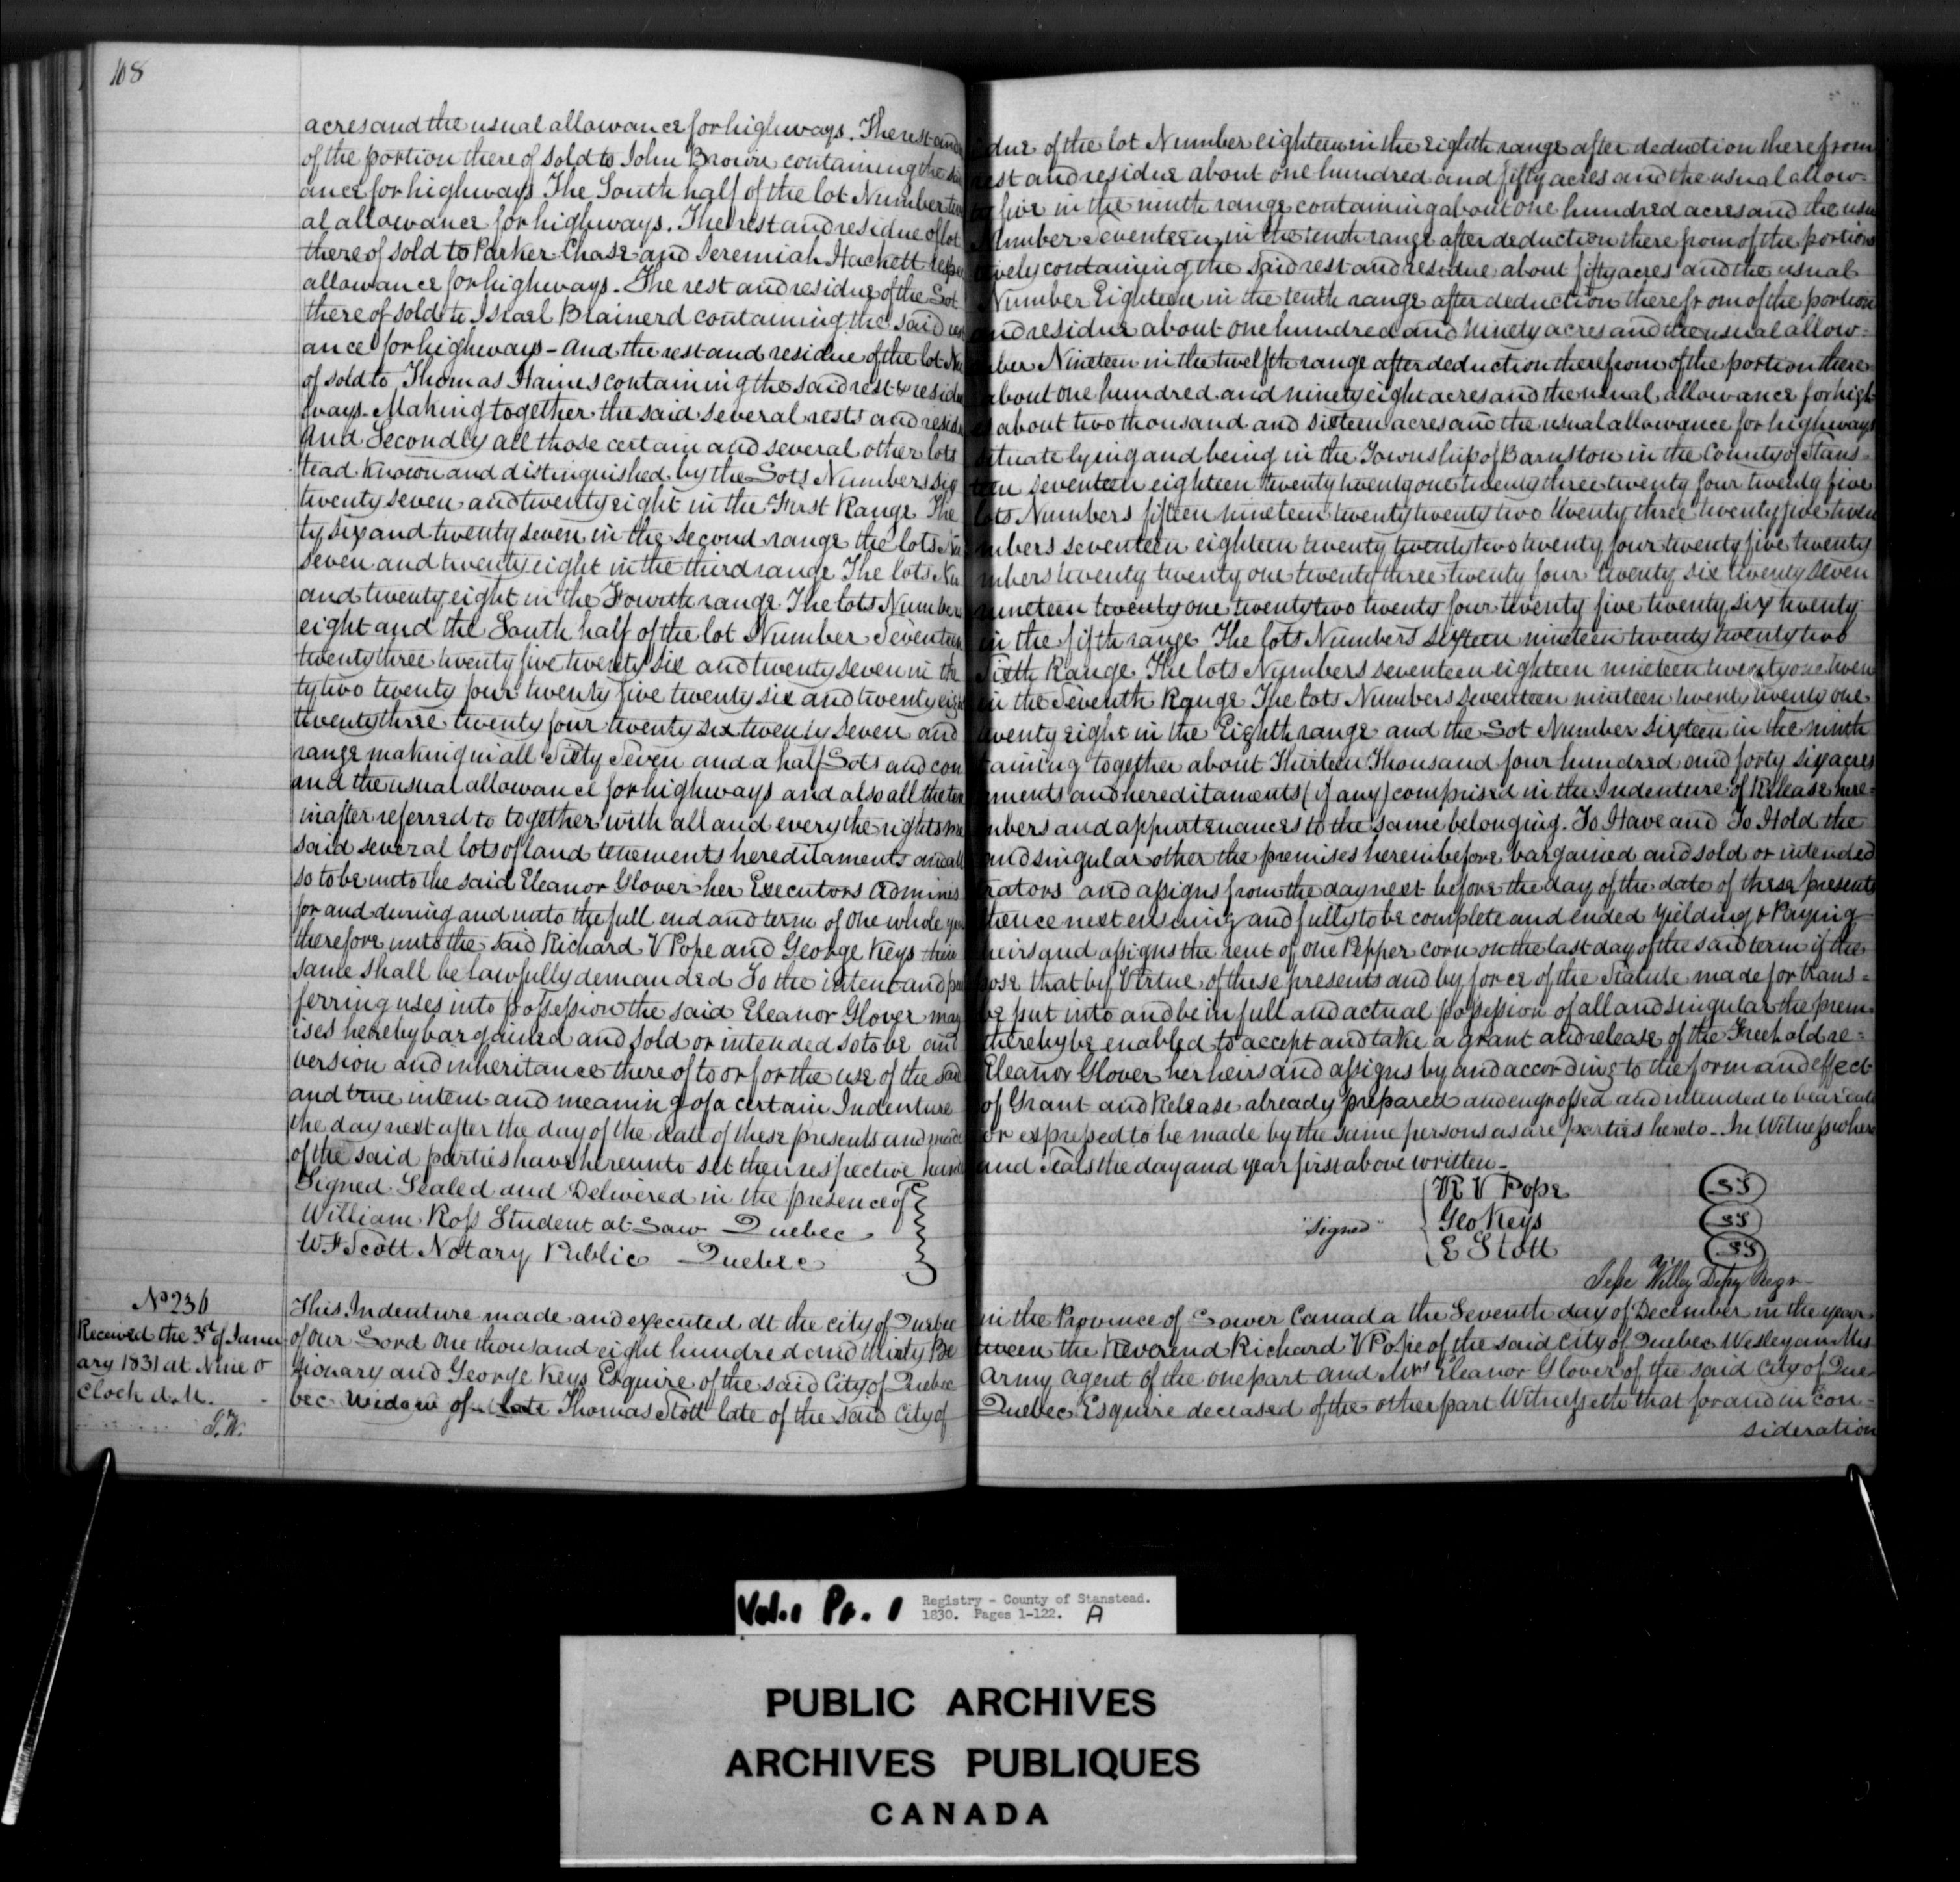 108
acres and the usual allowance for highways. The rest and residue of the lot Number eighteen in the eighth range after deduction therefrom
of the portion thereof sold to John Brown containing the said rest and residue about one hundred and fifty acres and the usual allow=
ance for highways The South half of the lot Number twenty five in the ninth range containing about one hundred acres and the usu
al allowance for highways. The rest and residue of lot Number Seventeen in the tenth range after deduction there from of the portions
thereof sold to Parker Chase and Jeremiah Hackett respectively containing the said rest and residue about fifty acres and the usual
allowance for highways. The rest and residue of the Lot Number Eighteen in the tenth range after deduction therefrom of the portion
thereof sold to Israel Brainerd containing the said rest and residue about one hundred and Ninety acres and the usual allow=
ance for highways - And the rest and residue of the lot Number Nineteen in the twelfth range after deduction therefrom of the portion there
of sold to Thomas Haines containing the said rest & residue about one hundred and ninety eight acres and the usual allowance for high
ways - Making together the said several rests and residues about two thousand and sixteen acres and the usual allowance for highways
And Secondly all those certain and several other lots situate lying and being in the Township of Barnston in the County of Stans=
tead known and distinguished by the Lots Numbers sixteen seventeen eighteen twenty twenty one twenty three twenty four twenty five
twenty seven and twenty eight in the First Range The lots Numbers fifteen nineteen twenty twenty two twenty three twenty five twen
ty six and twenty seven in the second range the lots Numbers seventeen eighteen twenty twenty two twenty four twenty five twenty
seven and twenty eight in the third range The lots Numbers twenty twenty one twenty three twenty four twenty six twenty seven
and twenty eight in the Fourth range The lots Numbers nineteen twenty one twenty two twenty four twenty five twenty six twenty
eight and the South half of the lot Number Seventeen in the fifth range The lots Numbers sixteen nineteen twenty twenty two
twenty three twenty five twenty six and twenty seven in the Sixth Range The lots Numbers seventeen eighteen nineteen twenty one twen
ty two twenty four twenty five twenty six and twenty eight in the Seventh Range The lots Numbers seventeen nineteen twenty twenty one
twenty three twenty four twenty six twenty seven and twenty eight in the Eighth range and the Lot Number sixteen in the ninth
range making in all Sixty Seven and a half Lots and containing together about Thirteen Thousand four hundred and forty six acres
and the usual allowance for highways and also all the tenements and hereditaments (if any) comprised in the Indenture of Release here=
inafter referred to together with all and every the rights members and appurtenances to the same belonging. To Have and To Hold the
said several lots of land tenements hereditaments and all and singular other the premises hereinbefore bargained and sold or intended
so to be unto the said Eleanor Glover her Executors Administrators and assigns from the day next before the day of the date of these presents
for and during and unto the full end and term of one whole year thence next ensuing and fully to be complete and ended yielding & Paying
therefore unto the said Richard V Pope and George Keys their heirs and assigns the rent of one Pepper corn on the last day of the said term if the
same shall be lawfully demanded To the intent and purpose that by Virtue of these presents and by force of the Statute made for trans=
ferring uses into possession the said Eleanor Glover may be put into and be in full and actual possession of all and singular the prem=
ises hereby bargained and sold or intended so to be and thereby be enabled to accept and take a grant and release of the Freehold re=
version and inheritance thereof to or for the use of the said Eleanor Glover her heirs and assigns by and according to the form and effect
and true intent and meaning of a certain Indenture of Grant and Release already prepared and engrossed and intended to bear date
the day next after the day of the date of these presents and made or expressed to be made by the same persons as are parties hereto - In Witness where
of the said parties have hereunto set their respective hands and Seals the day and year first above written -
Signed Sealed and Delivered in the presence of
William Ross Student at Law Quebec
W F Scott Notary Public Quebec
"Signed"
R V Pope SS
Geo Keys SS
E Stott SS
Jesse Willey Depy Regr
No 236
Received the 3d of Janu
ary 1831 at Nine o
Clock A.M.
J.W.
This Indenture made and executed at the city of Quebec in the Province of Lower Canada the Seventh day of December in the year
of our Lord One thousand eight hundred and thirty Between the Reverend Richard V Pope of the said City of Quebec Wesleyan Mis
sionary and George Keys Esquire of the said City of Quebec Army Agent of the one part and Mrs Eleanor Glover of the said City of Que
bec Widow of late Thomas Stott late of the said City of Quebec Esquire deceased of the other part Witnesseth that for and in con=
sideration
Vol. 1 Pt. 1
Registry - County of Stanstead.
1830. Pages 1-122. A
PUBLIC ARCHIVES
ARCHIVES PUBLIQUES
CANADA